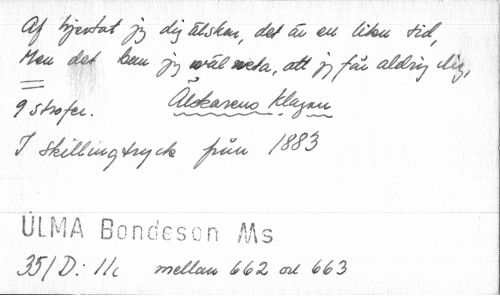 Af hjertat jg dig älskar, det är en liten tid,
Men det kan jg wäl weta, att jg får aldrig dig,
9 strofer. Älskarens klagan
I Skillingtryck från 1883
ULMA Bondeson Ms
35/D: 11c mellan 662 och 663